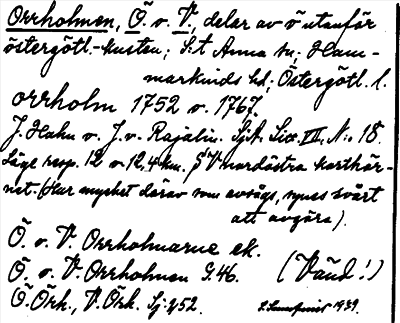 Orrholmen, Ö. v. V., delar av ö utanför
östergötl.-kusten; S:t Anna sn; Ham-
markinds hd; Östergötl. l.
orrholm 1752 v. 1767.
J. Hahn v. J. v. Rajalin. SjA. Sect. VII, N:o 18.
Läge resp. 12 v. 12,4 km. S V nordöstra karthör-
net. (Hur mycket därav som avsågs, synes svårt
att avgöra).
Ö. v. V. Orrholmarne ek.
Ö. v. V. Orrholmen G.46. (Vänd!)
Ö Örk., V. Örk. Sj: 252.
1939.